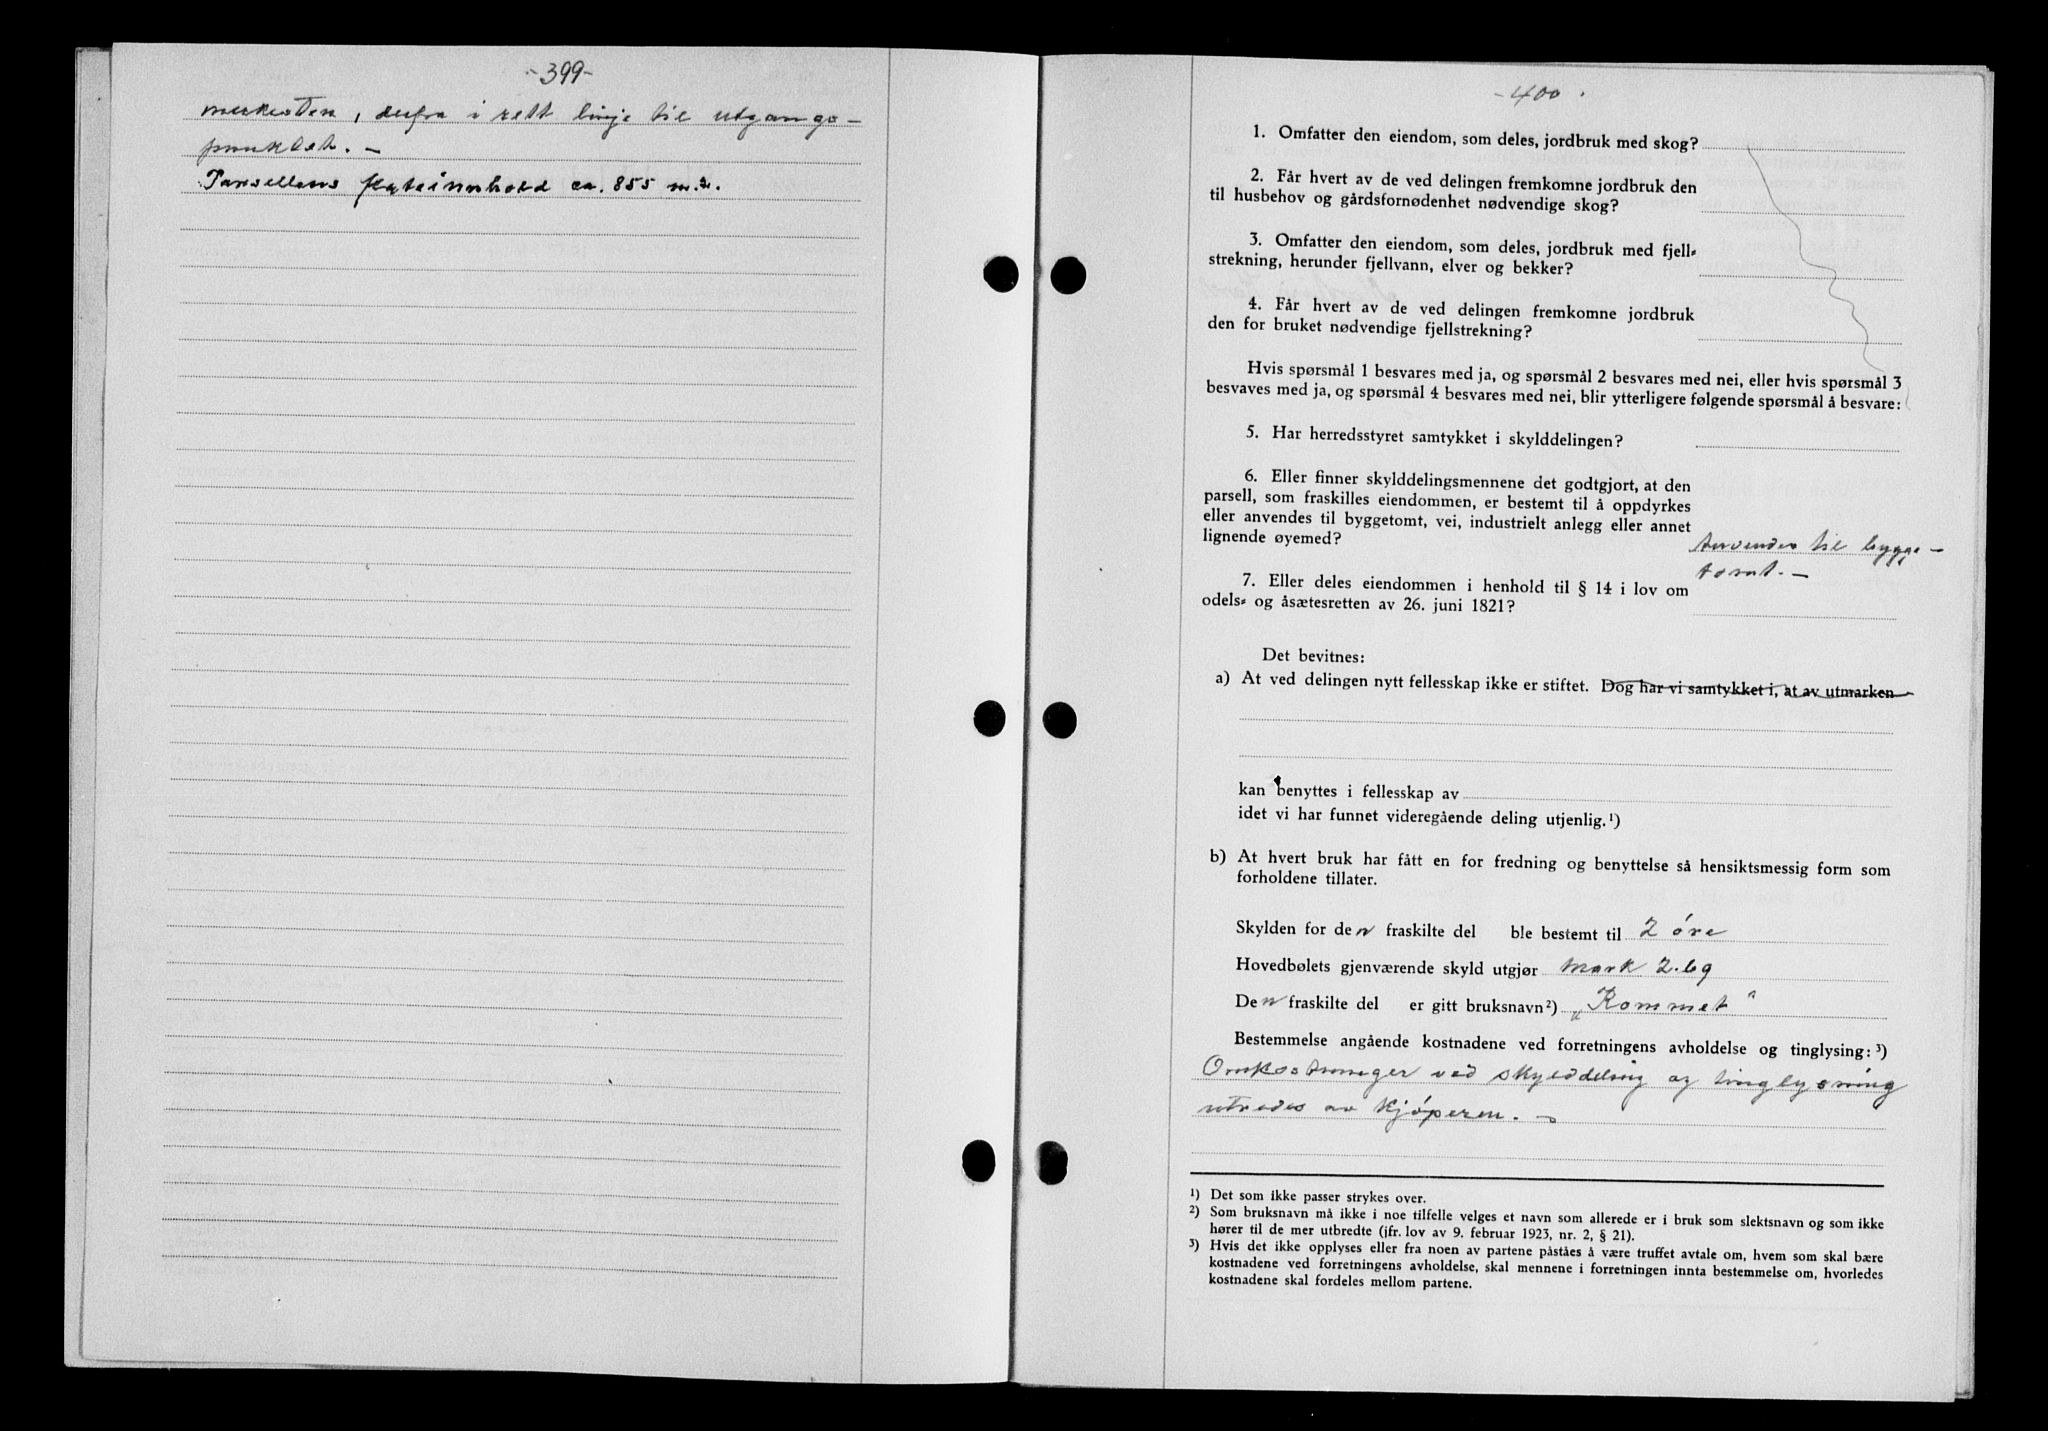 -399-
merkesten, derfra i rett linje til utgangs-
punktet. -
Parsellens flateinnhold ca. 855 m.2.
-400.
1. Omfatter den eiendom, som deles, jordbruk med skog?
2. Får hvert av de ved delingen fremkomne jordbruk den
til husbehov og gårdsfornødenhet nødvendige skog?
3. Omfatter den eiendom, som deles, jordbruk med fjell-
strekning, herunder fjellvann, elver og bekker?
4. Får hvert av de ved delingen fremkomne jordbruk
den for bruket nødvendige fjellstrekning?
Hvis spørsmål 1 besvares med ja, og spørsmål 2 besvares med nei, eller hvis spørsmål 3
besvaves med ja, og spørsmål 4 besvares med nei, blir ytterligere følgende spørsmål å besvare:
5. Har herredsstyret samtykket i skylddelingen?
6. Eller finner skylddelingsmennene det godtgjort, at den
parsell, som fraskilles eiendommen, er bestemt til å oppdyrkes
eller anvendes til byggetomt, vei, industrielt anlegg eller annet
lignende øyemed? Anvendes til bygge-
tomt. -
7. Eller deles eiendommen i henhold til § 14 i lov om
odels- og åsætesretten av 26. juni 1821?
Det bevitnes:
a) At ved delingen nytt fellesskap ikke er stiftet. Dog har vi samtykket i, at av utmarken
kan benyttes i fellesskap av
idet vi har funnet videregående deling utjenlig.¹)
b) At hvert bruk har fått en for fredning og benyttelse så hensiktsmessig form som
forholdene tillater.
Skylden for den fraskilte del ble bestemt til 2 øre
Hovedbølets gjenværende skyld utgjør mark 2.69
Den fraskilte del er gitt bruksnavn²) „Rommet"
Bestemmelse angående kostnadene ved forretningens avholdelse og tinglysing:³)
Omkostninger ved skylddeling og tinglysning
utredes av kjøperen. -
¹) Det som ikke passer strykes over.
²) Som bruksnavn må ikke i noe tilfelle velges et navn som allerede er i bruk som slektsnavn og som ikke
hører til de mer utbredte (jfr. lov av 9. februar 1923, nr. 2, § 21).
³) Hvis det ikke opplyses eller fra noen av partene påståes å være truffet avtale om, hvem som skal bære
kostnadene ved forretningens avholdelse, skal mennene i forretningen innta bestemmelse om, hvorledes
kostnadene skal fordeles mellom partene.